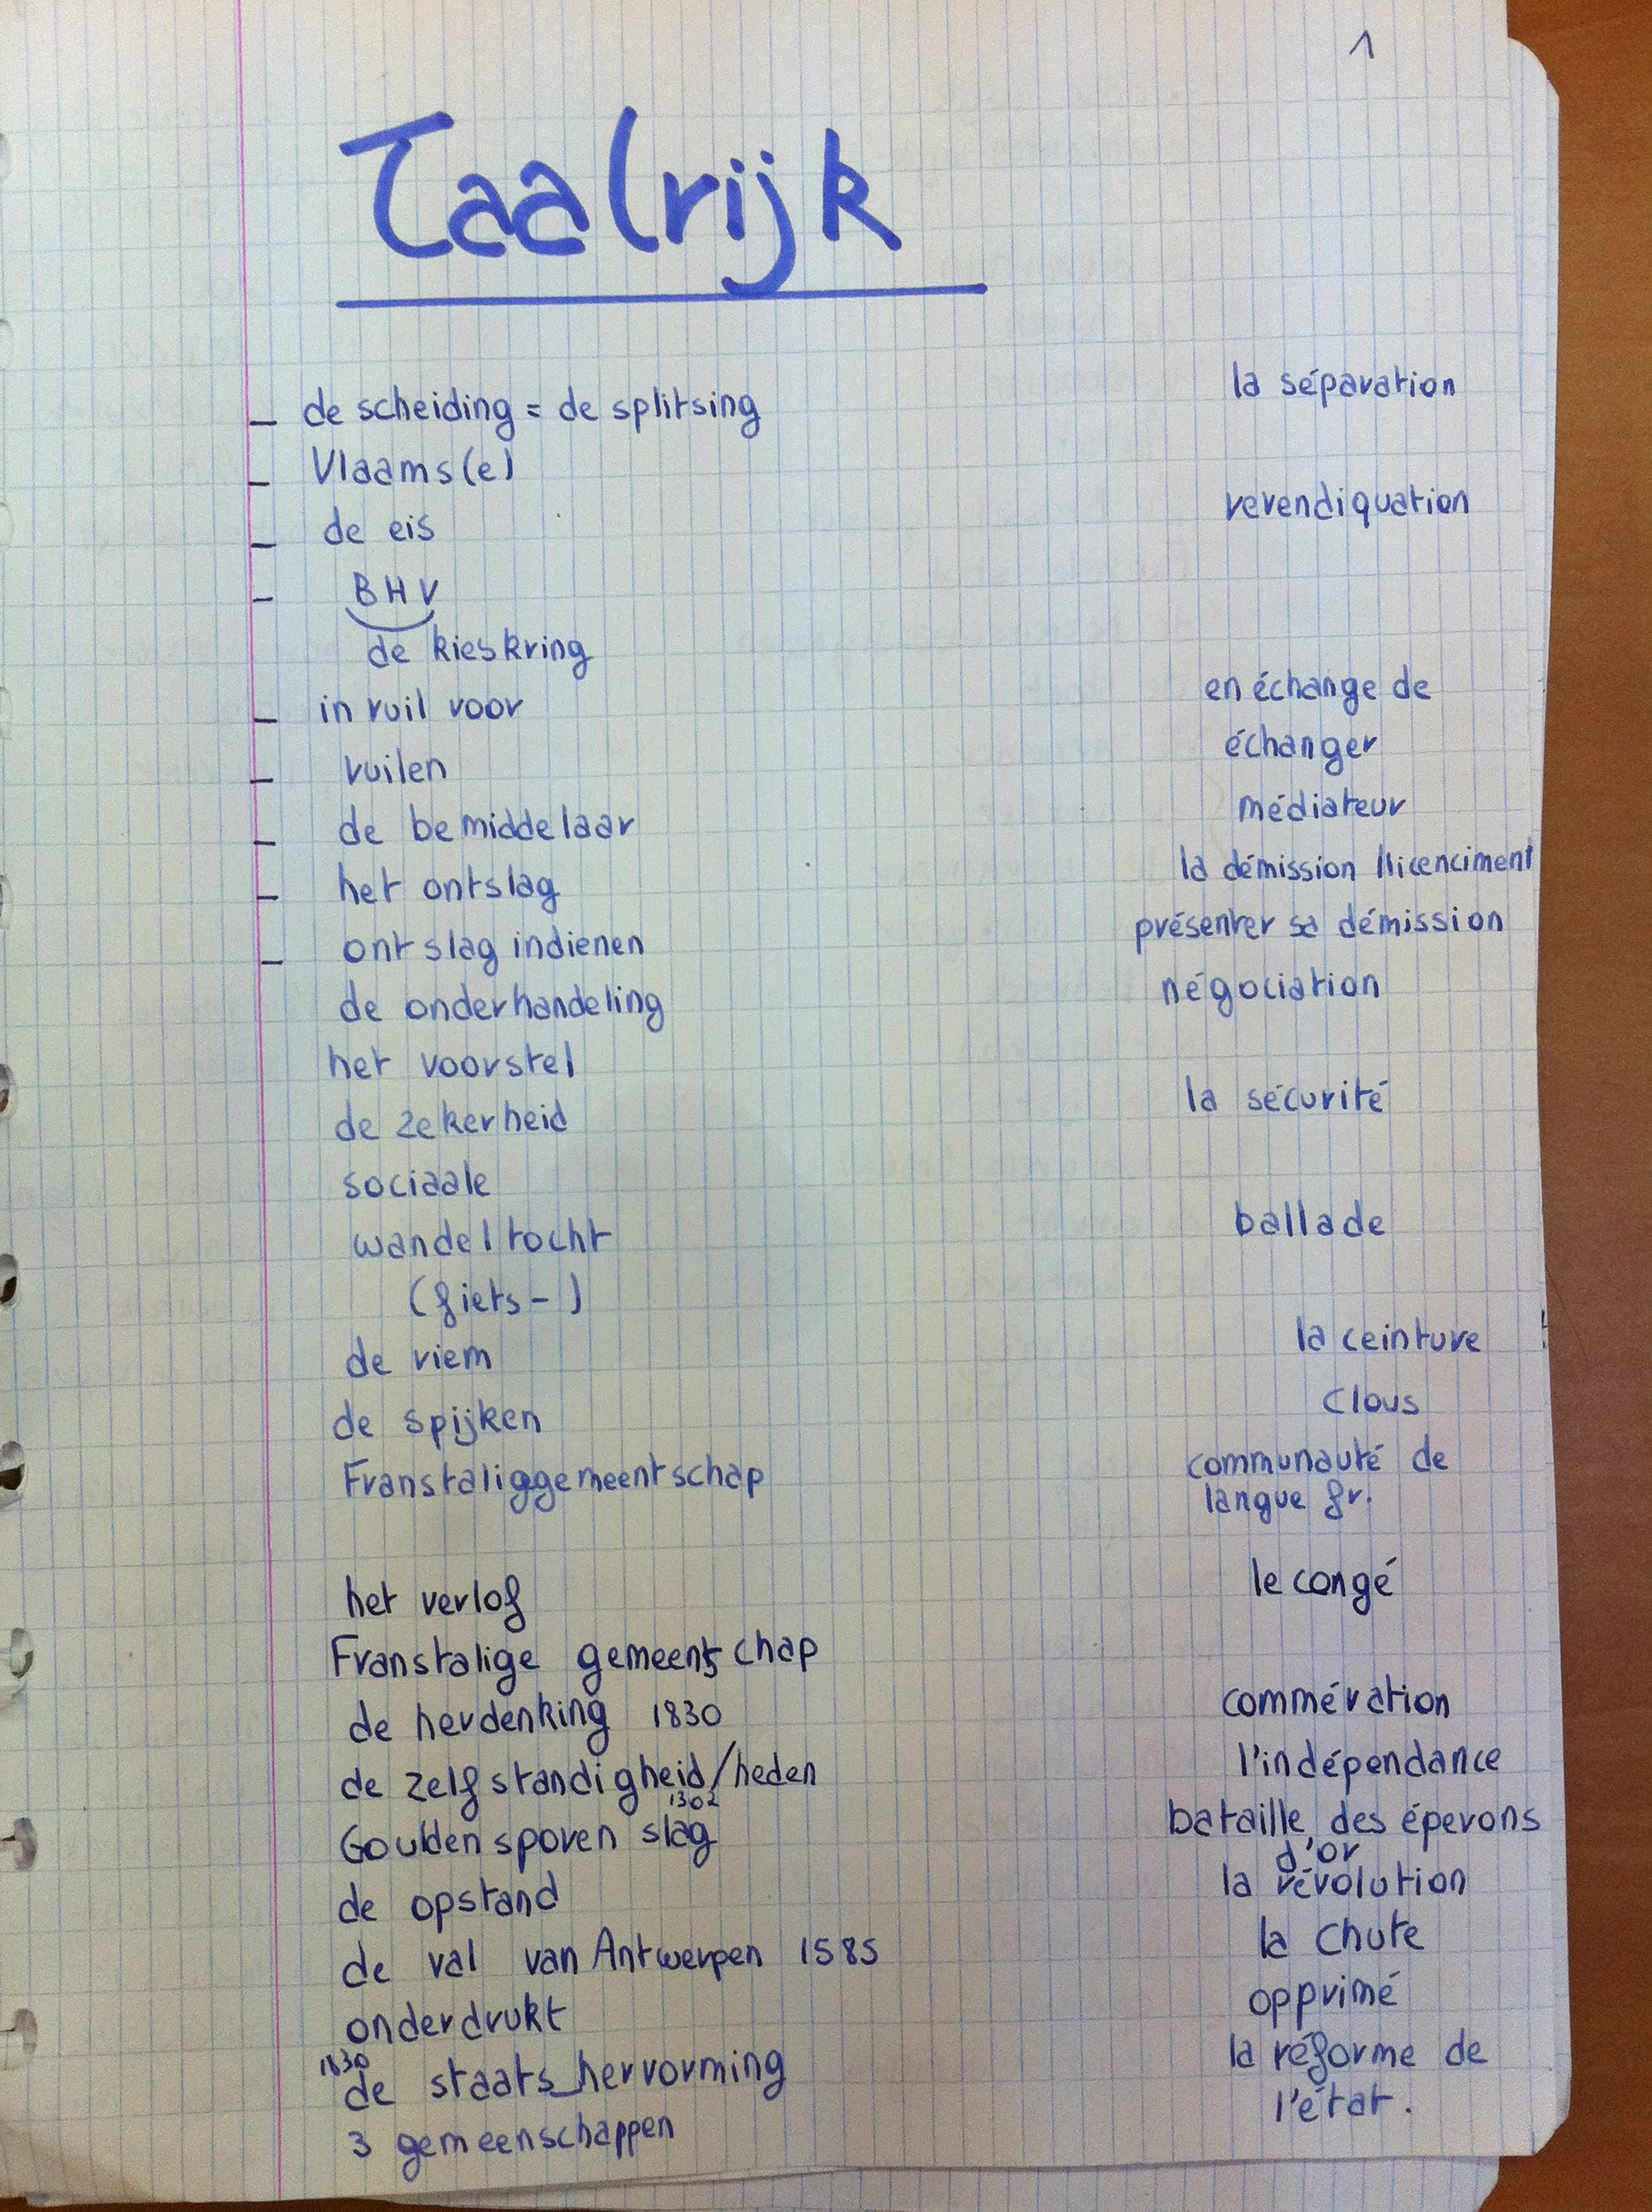 1
Taalrijk
– de scheiding = de splitsing la séparation
– Vlaams(e)
– de eis revendiquation
– BHV
de kieskring
– in ruil voor en échange de
– ruilen échanger
– de bemiddelaar médiateur
– het ontslag la démission / licenciment
– ontslag indienen présenter sa démission
de onderhandeling négociation
het voorstel
de zekerheid la sécurité
sociaale
wandeltocht ballade
(fiets-)
de riem la ceinture
de spijken clous
Franstaliggemeentschap communauté de
langue fr.
het verlof le congé
Franstalige gemeentschap
de herdenking 1830 commération
de zelfstandigheid/heden l'indépendance
1302
Goulden sporen slag bataille des éperons
d'or
de opstand la révolution
de val van Antwerpen 1585 la chute
onderdrukt opprimé
1830
de staats_hervorming la réforme de
l'état.
3 gemeenschappen